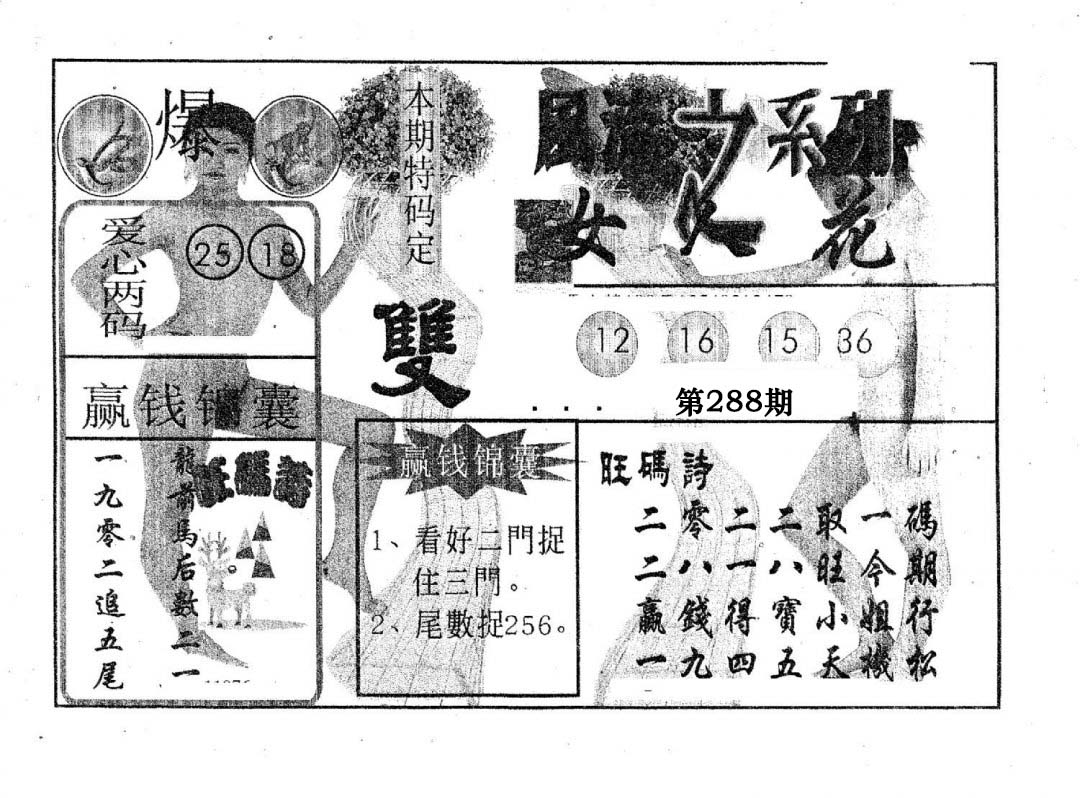 爆
本期特码定
雙
爱心两码
25 18
赢钱锦囊
龍前馬后數二一
一九零二追五尾
旺碼詩
赢钱锦囊
1、看好二門捉
住三門。
2、尾數捉256。
之系列
女人花
12 16 15 36
第288期
旺碼詩
二零二二取一碼
二八一八旺今期
赢錢得寶小姐行
一九四五天機松